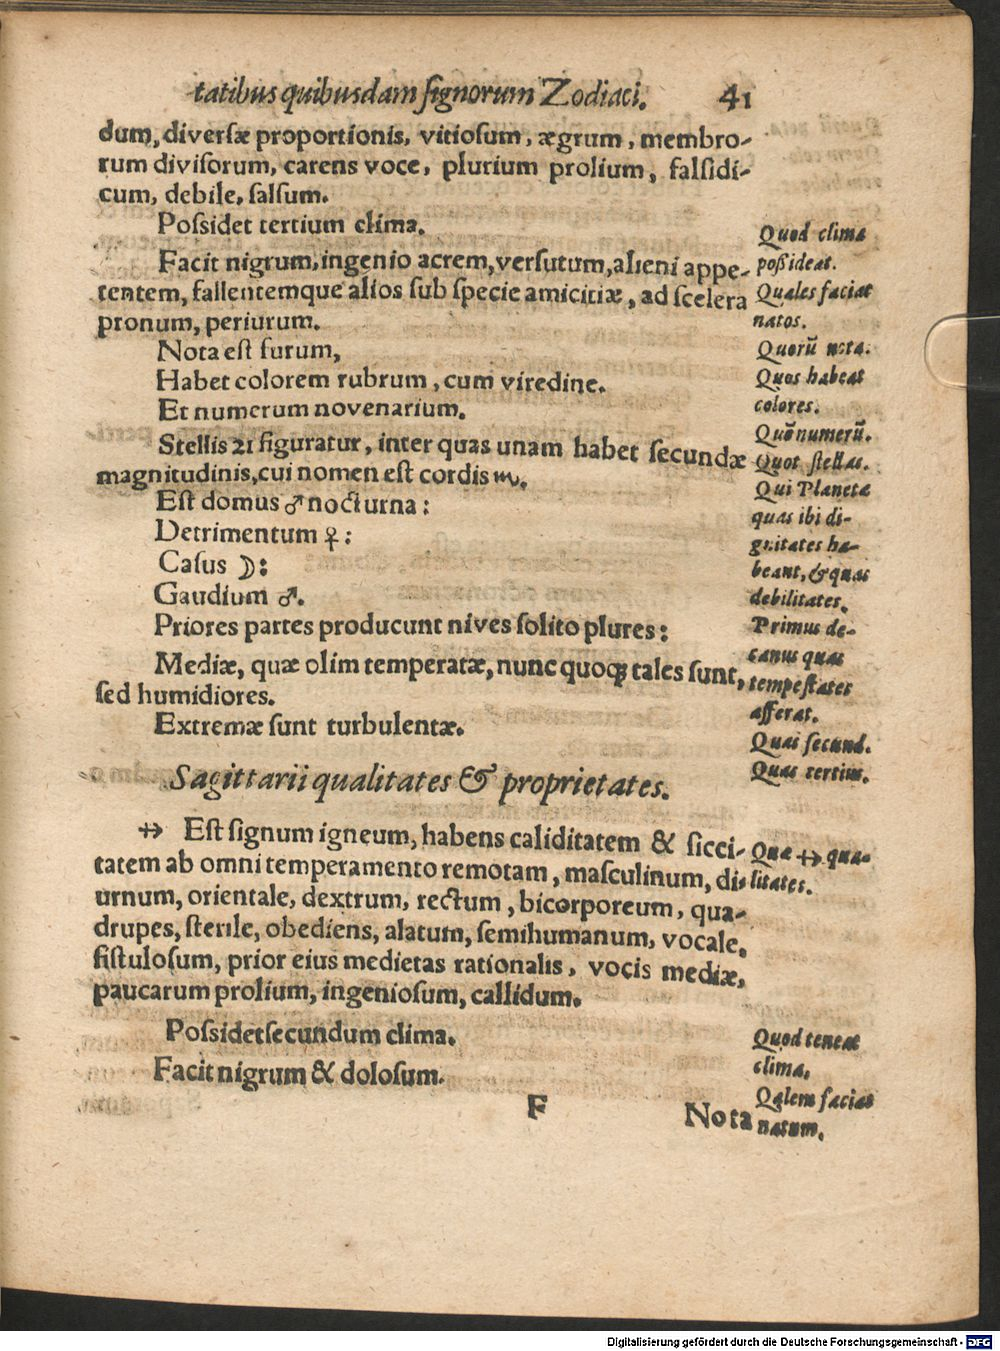 tatibus quibusdam signorum Zodiaci. 41
dum, diversæ proportionis, vitiosum, ægrum, membro-
rum divisorum, carens voce, plurium prolium, falsidi-
cum, debile, salsum.
Possidet tertium clima.
Facit nigrum, ingenio acrem, versutum, alieni appe-
tentem, fallentemque alios sub specie amicitiæ, ad scelera
pronum, periurum.
Nota est furum,
Habet colorem rubrum, cum viredine.
Et numerum novenarium.
Stellis 21 figuratur, inter quas unam habet secundæ
magnitudinis, cui nomen est cordis ♏.
Est domus ♂ nocturna:
Detrimentum ♀:
Casus ☽:
Gaudium ♂.
Priores partes producunt nives solito plures:
Mediæ, quæ olim temperatæ, nunc quoqꝫ tales sunt,
sed humidiores.
Extremæ sunt turbulentæ.
Sagittarii qualitates & proprietates.
♐ Est signum igneum, habens caliditatem & sicci-
tatem ab omni temperamento remotam, masculinum, di-
urnum, orientale, dextrum, rectum, bicorporeum, qua-
drupes, sterile, obediens, alatum, semihumanum, vocale,
fistulosum, prior eius medietas rationalis, vocis mediæ,
paucarum prolium, ingeniosum, callidum.
Possidet secundum clima.
Facit nigrum & dolosum.
F
Nota
Quod clima
possideat.
Quales faciat
natos.
Quorū nota.
Quos habeat
colores.
Quē numerū.
Quot stellas.
Qui Planetæ
quas ibi di-
gnitates ha-
beant, & quas
debilitates.
Primus de-
canus quas
tempestates
afferat.
Quas secund.
Quas tertius.
Quæ ♐ qua-
litates.
Quod teneat
clima.
Qalem faciat
natum.
Digitalisierung gefördert durch die Deutsche Forschungsgemeinschaft - DFG